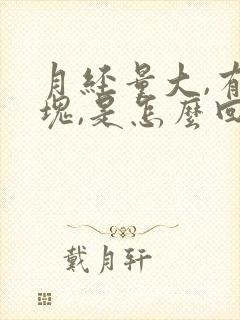 月经量大,有
块,是怎麼回
戴月轩